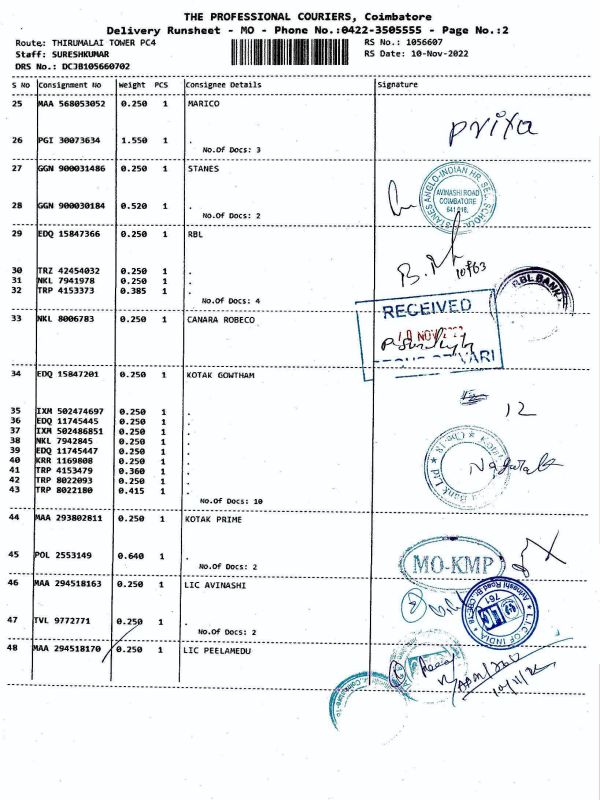 THE PROFESSIONAL COURIERS, Coimbatore
Delivery Runsheet - MO - Phone No.:0422-3505555 - Page No.:2
Route: THIRUMALAI TOWER PC4 RS No.: 1056607
Staff: SURESHKUMAR RS Date: 10-Nov-2022
DRS No.: DCJB105660702
S No Consignment No Weight PCS Consignee Details Signature
25 MAA 568053052 0.250 1 MARICO
Priya
26 PGI 30073634 1.550 1 .
No.Of Docs: 3
27 GGN 900031486 0.250 1 STANES
STANES ANGLO-INDIAN HR. SEC. SCHOOL
AVINASHI ROAD
COIMBATORE
641 018.
28 GGN 900030184 0.520 1 .
No.Of Docs: 2
29 EDQ 15847366 0.250 1 RBL
30 TRZ 42454032 0.250 1 .
31 NKL 7941978 0.250 1 .
32 TRP 4153373 0.385 1 .
No.Of Docs: 4
RBL BANK
RECEIVED
33 NKL 8006783 0.250 1 CANARA ROBECO
34 EDQ 15847201 0.250 1 KOTAK GOWTHAM
12
35 IXM 502474697 0.250 1 .
36 EDQ 11745445 0.250 1 .
37 IXM 502486851 0.250 1 .
38 NKL 7942845 0.250 1 .
39 EDQ 11745447 0.250 1 .
40 KRR 1169808 0.250 1 .
41 TRP 4153479 0.360 1 .
42 TRP 8022093 0.250 1 .
43 TRP 8022180 0.415 1 .
No.Of Docs: 10
44 MAA 293802811 0.250 1 KOTAK PRIME
45 POL 2553149 0.640 1 .
No.Of Docs: 2
MO-KMP
46 MAA 294518163 0.250 1 LIC AVINASHI
L.I.C. OF INDIA
761
47 TVL 9772771 0.250 1 .
No.Of Docs: 2
48 MAA 294518170 0.250 1 LIC PEELAMEDU
10/11/22